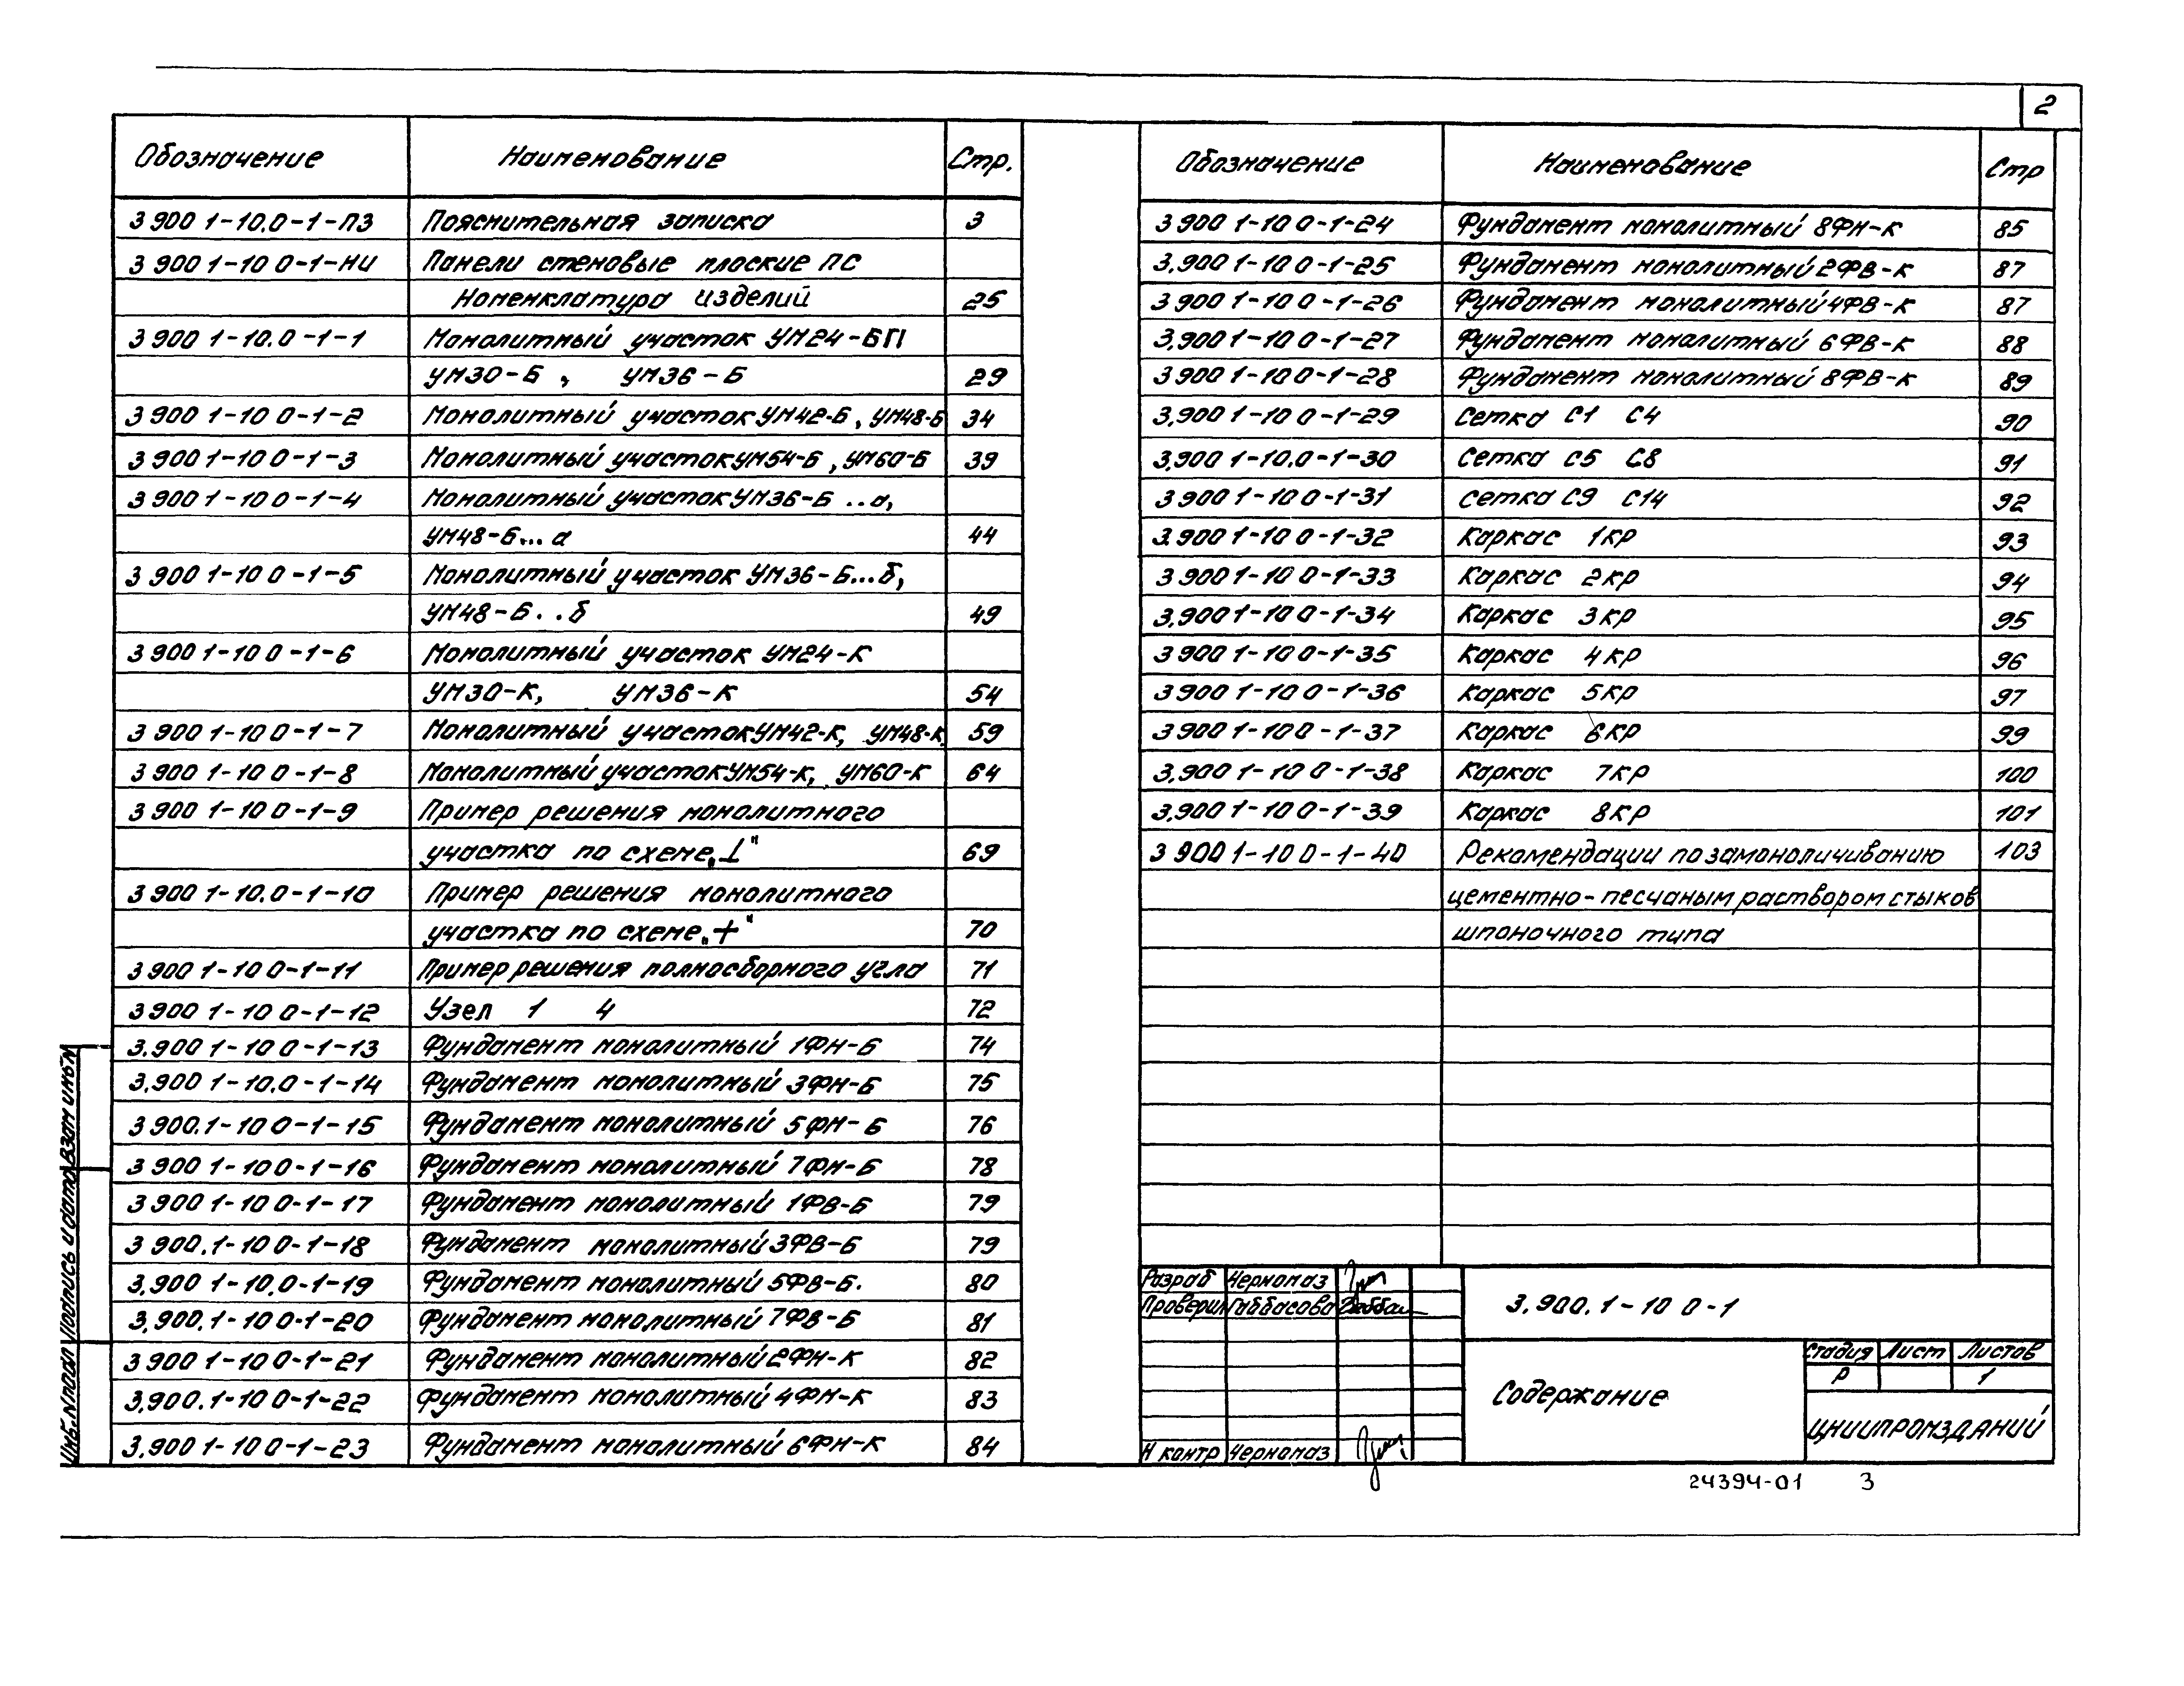 2
Обозначение Наименование Стр.
3 900 1-10.0-1-ПЗ Пояснительная записка 3
3 900 1-10 0-1-НИ Панели стеновые плоские ПС
Номенклатура изделий 25
3 900 1-10.0-1-1 Монолитный участок УМ24-БП
УМ30-Б, УМ36-Б 29
3 900 1-10 0-1-2 Монолитный участок УМ42-Б, УМ48-Б 34
3 900 1-10 0-1-3 Монолитный участок УМ54-Б, УМ60-Б 39
3 900 1-10 0-1-4 Монолитный участок УМ36-Б ..а,
УМ48-Б...а 44
3 900 1-10 0-1-5 Монолитный участок УМ36-Б...б,
УМ48-Б..б 49
3 900 1-10 0-1-6 Монолитный участок УМ24-К
УМ30-К, УМ36-К 54
3 900 1-10 0-1-7 Монолитный участок УМ42-К, УМ48-К 59
3 900 1-10 0-1-8 Монолитный участок УМ54-К, УМ60-К 64
3 900 1-10 0-1-9 Пример решения монолитного
участка по схеме „⊥" 69
3 900 1-10.0-1-10 Пример решения монолитного
участка по схеме „+" 70
3 900 1-10 0-1-11 Пример решения полносборного угла 71
3 900 1-10 0-1-12 Узел 1 4 72
3.900 1-10 0-1-13 Фундамент монолитный 1ФН-Б 74
3.900 1-10.0-1-14 Фундамент монолитный 3ФН-Б 75
3 900.1-10 0-1-15 Фундамент монолитный 5ФН-Б 76
3 900 1-10 0-1-16 Фундамент монолитный 7ФН-Б 78
3 900 1-10 0-1-17 Фундамент монолитный 1ФВ-Б 79
3 900.1-10 0-1-18 Фундамент монолитный 3ФВ-Б 79
3.900 1-10.0-1-19 Фундамент монолитный 5ФВ-Б. 80
3.900.1-10 0-1-20 Фундамент монолитный 7ФВ-Б 81
3 900 1-10 0-1-21 Фундамент монолитный 2ФН-К 82
3.900.1-10 0-1-22 Фундамент монолитный 4ФН-К 83
3.900 1-10 0-1-23 Фундамент монолитный 6ФН-К 84
Обозначение Наименование Стр
3.900 1-10 0-1-24 Фундамент монолитный 8ФН-К 85
3.900 1-10 0-1-25 Фундамент монолитный 2ФВ-К 87
3 900 1-10 0-1-26 Фундамент монолитный 4ФВ-К 87
3.900 1-10 0-1-27 Фундамент монолитный 6ФВ-К 88
3 900 1-10 0-1-28 Фундамент монолитный 8ФВ-К 89
3.900 1-10 0-1-29 Сетка С1 С4 90
3.900 1-10.0-1-30 Сетка С5 С8 91
3 900 1-10 0-1-31 Сетка С9 С14 92
3.900 1-10 0-1-32 Каркас 1КР 93
3 900 1-10 0-1-33 Каркас 2КР 94
3.900 1-10 0-1-34 Каркас 3КР 95
3 900 1-10 0-1-35 Каркас 4КР 96
3 900 1-10 0-1-36 Каркас 5КР 97
3 900 1-10 0-1-37 Каркас 6КР 99
3.900 1-10 0-1-38 Каркас 7КР 100
3.900 1-10 0-1-39 Каркас 8КР 101
3 900 1-10 0-1-40 Рекомендации по замоноличиванию 103
цементно-песчаным раствором стыков
шпоночного типа
Разраб Черномаз
Проверил Габбасова
Н контр Черномаз
3.900.1-10 0-1
Содержание
Стадия Лист Листов
Р 1
ЦНИИПРОМЗДАНИЙ
Инв.N подл Подпись и дата Взам инв.N
24394-01 3